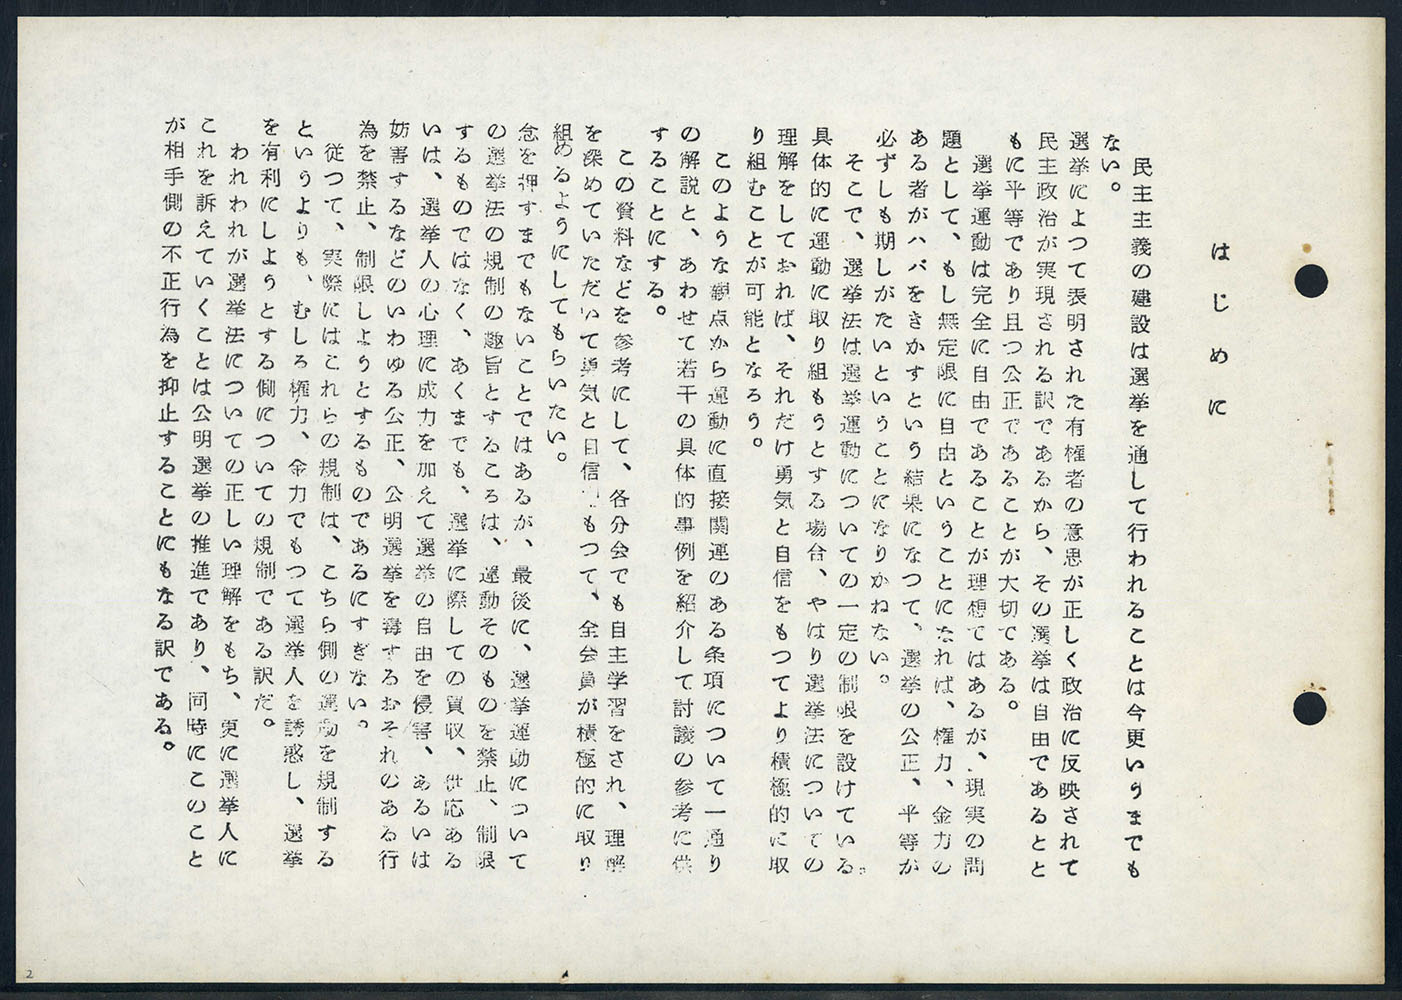 はじめに
民主主義の建設は選挙を通して行われることは今更いうまでも
ない。
選挙によつて表明された有権者の意思が正しく政治に反映されて
民主政治が実現される訳であるから、その選挙は自由であるとと
もに平等であり且つ公正であることが大切である。
選挙運動は完全に自由であることが理想ではあるが、現実の問
題として、もし無定限に自由ということになれば、権力、金力の
ある者がハバをきかすという結果になつて、選挙の公正、平等が
必ずしも期しがたいということになりかねない。
そこで、選挙法は選挙運動についての一定の制限を設けている。
具体的に運動に取り組もうとする場合、やはり選挙法についての
理解をしておれば、それだけ勇気と自信をもつてより積極的に取
り組むことが可能となろう。
このような観点から運動に直接関連のある条項について一通り
の解説と、あわせて若干の具体的事例を紹介して討議の参考に供
することにする。
この資料などを参考にして、各分会でも自主学習をされ、理解
を深めていただいて勇気と自信をもつて、全会員が積極的に取り
組めるようにしてもらいたい。
念を押すまでもないことではあるが、最後に、選挙運動について
の選挙法の規制の趣旨とするころは、運動そのものを禁止、制限
するものではなく、あくまでも、選挙に際しての買収、供応ある
いは、選挙人の心理に成力を加えて選挙の自由を侵害、あるいは
妨害するなどのいわゆる公正、公明選挙を毒するおそれのある行
為を禁止、制限しようとするものであるにすぎない。
従つて、実際にはこれらの規制は、こちら側の運動を規制する
というよりも、むしろ権力、金力でもつて選挙人を誘惑し、選挙
を有利にしようとする側についての規制である訳だ。
われわれが選挙法についての正しい理解をもち、更に選挙人に
これを訴えていくことは公明選挙の推進であり、同時にこのこと
が相手側の不正行為を抑止することにもなる訳である。
2